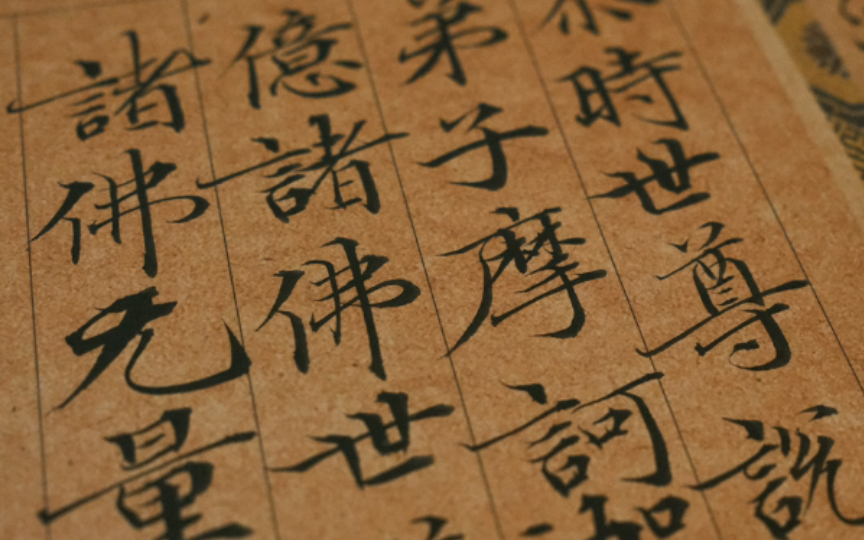 時世尊説
弟子摩訶
億諸佛世
諸佛无量